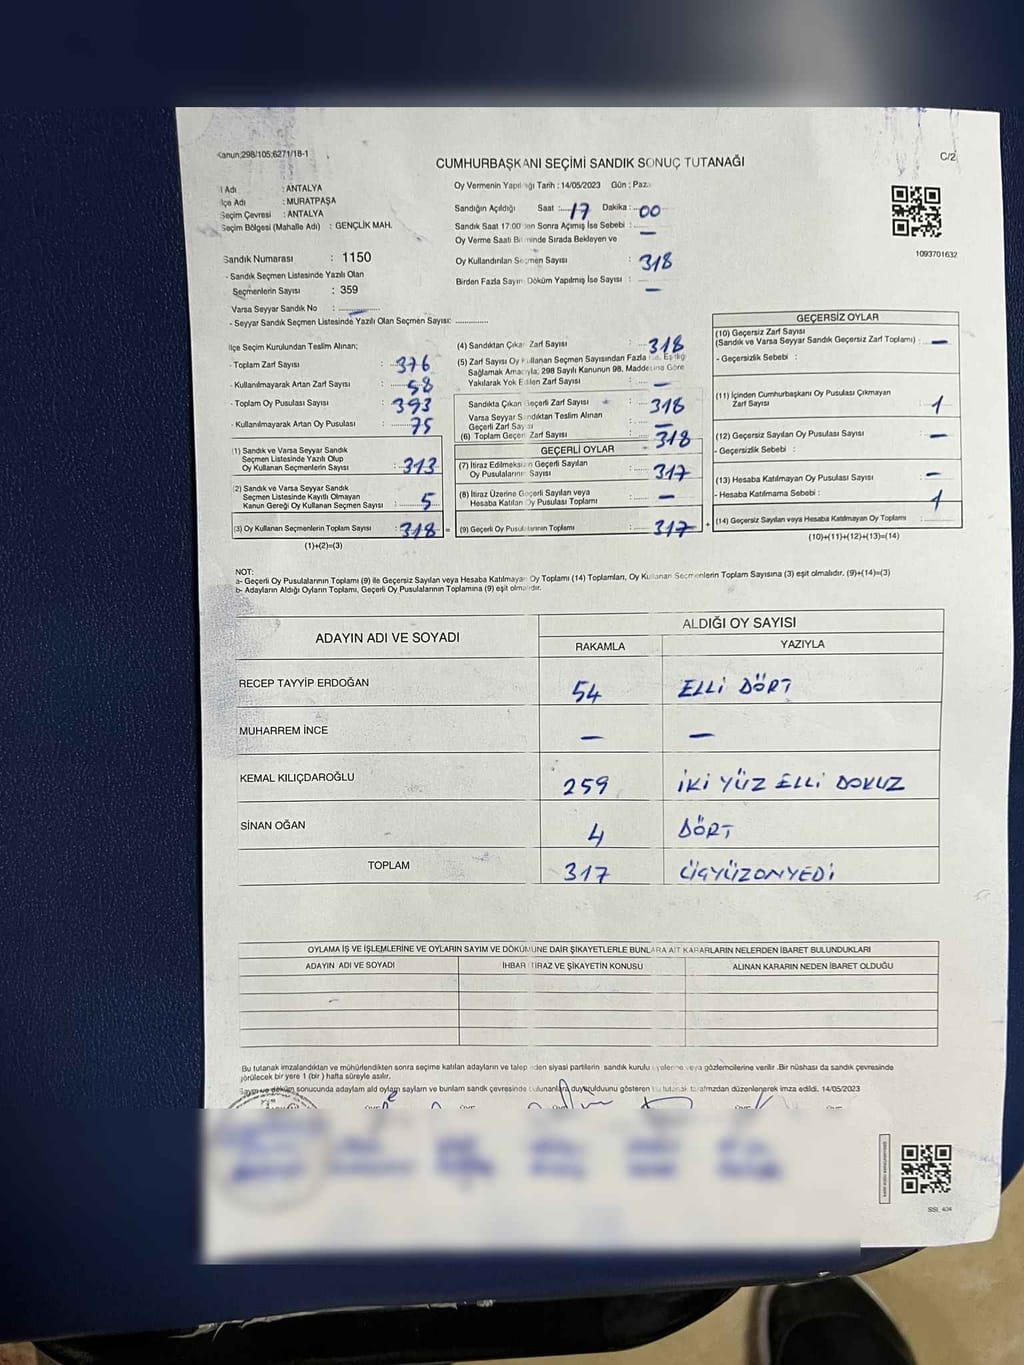 Kanun;298/105;6271/18-1
CUMHURBAŞKANI SEÇİMİ SANDIK SONUÇ TUTANAĞI
C/2
İl Adı : ANTALYA
İlçe Adı : MURATPAŞA
Seçim Çevresi : ANTALYA
Seçim Bölgesi (Mahalle Adı) : GENÇLİK MAH.
Sandık Numarası : 1150
- Sandık Seçmen Listesinde Yazılı Olan
Seçmenlerin Sayısı : 359
Varsa Seyyar Sandık No : —
- Seyyar Sandık Seçmen Listesinde Yazılı Olan Seçmen Sayısı: ............
Oy Vermenin Yapıldığı Tarih : 14/05/2023 Gün : Pazar
Sandığın Açıldığı Saat :....17 Dakika :...00
Sandık Saat 17:00'den Sonra Açımış İse Sebebi : —
Oy Verme Saati Bitiminde Sırada Bekleyen ve
Oy Kullandırılan Seçmen Sayısı : 318
Birden Fazla Sayım Döküm Yapılmış İse Sayısı : —
1093701632
İlçe Seçim Kurulundan Teslim Alınan;
- Toplam Zarf Sayısı : 376
- Kullanılmayarak Artan Zarf Sayısı : 58
- Toplam Oy Pusulası Sayısı : 393
- Kullanılmayarak Artan Oy Pusulası : 75
(1) Sandık ve Varsa Seyyar Sandık
Seçmen Listesinde Yazılı Olup
Oy Kullanan Seçmenlerin Sayısı : 313
(2) Sandık ve Varsa Seyyar Sandık
Seçmen Listesinde Kayıtlı Olmayan
Kanun Gereği Oy Kullanan Seçmen Sayısı : 5
(3) Oy Kullanan Seçmenlerin Toplam Sayısı : 318 =
(1)+(2)=(3)
(4) Sandıktan Çıkan Zarf Sayısı : 318
(5) Zarf Sayısı Oy Kullanan Seçmen Sayısından Fazla İse, Eşitliği
Sağlamak Amacıyla; 298 Sayılı Kanunun 98. Maddesine Göre
Yakılarak Yok Edilen Zarf Sayısı : —
Sandıkta Çıkan Geçerli Zarf Sayısı : 318
Varsa Seyyar Sandıktan Teslim Alınan
Geçerli Zarf Sayısı : —
(6) Toplam Geçerli Zarf Sayısı : 318
GEÇERLİ OYLAR
(7) İtiraz Edilmeksizin Geçerli Sayılan
Oy Pusulalarının Sayısı : 317
(8) İtiraz Üzerine Geçerli Sayılan veya
Hesaba Katılan Oy Pusulası Toplamı : —
(9) Geçerli Oy Pusulalarının Toplamı : 317 +
GEÇERSİZ OYLAR
(10) Geçersiz Zarf Sayısı
(Sandık ve Varsa Seyyar Sandık Geçersiz Zarf Toplamı) : —
- Geçersizlik Sebebi :
(11) İçinden Cumhurbaşkanı Oy Pusulası Çıkmayan
Zarf Sayısı : 1
(12) Geçersiz Sayılan Oy Pusulası Sayısı : —
- Geçersizlik Sebebi :
(13) Hesaba Katılmayan Oy Pusulası Sayısı : —
- Hesaba Katılmama Sebebi :
(14) Geçersiz Sayılan veya Hesaba Katılmayan Oy Toplamı : 1
(10)+(11)+(12)+(13)=(14)
NOT:
a- Geçerli Oy Pusulalarının Toplamı (9) ile Geçersiz Sayılan veya Hesaba Katılmayan Oy Toplamı (14) Toplamları, Oy Kullanan Seçmenlerin Toplam Sayısına (3) eşit olmalıdır. (9)+(14)=(3)
b- Adayların Aldığı Oyların Toplamı, Geçerli Oy Pusulalarının Toplamına (9) eşit olmalıdır.
ADAYIN ADI VE SOYADI
ALDIĞI OY SAYISI
RAKAMLA YAZIYLA
RECEP TAYYİP ERDOĞAN 54 ELLİ DÖRT
MUHARREM İNCE — —
KEMAL KILIÇDAROĞLU 259 İKİ YÜZ ELLİ DOKUZ
SİNAN OĞAN 4 DÖRT
TOPLAM 317 ÜÇYÜZONYEDİ
OYLAMA İŞ VE İŞLEMLERİNE VE OYLARIN SAYIM VE DÖKÜMÜNE DAİR ŞİKAYETLERLE BUNLARA AİT KARARLARIN NELERDEN İBARET BULUNDUKLARI
ADAYIN ADI VE SOYADI İHBAR İTİRAZ VE ŞİKAYETİN KONUSU ALINAN KARARIN NEDEN İBARET OLDUĞU
Bu tutanak imzalandıktan ve mühürlendikten sonra seçime katılan adayların ve talep eden siyasi partilerin sandık kurulu üyelerine veya gözlemcilerine verilir. Bir nüshası da sandık çevresinde
görülecek bir yere 1 (bir) hafta süreyle asılır.
Sayım ve döküm sonucunda adayların aldığı oyların sayılarını ve bunların sandık çevresinde bulunanlara duyurulduğunu gösteren bu tutanak tarafımızdan düzenlenerek imza edildi. 14/05/2023
SSI_404